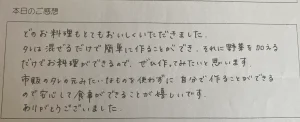 本日のご感想
どのお料理もとてもおいしくいただきました。
タレは混ぜるだけで簡単に作ることができ、それに野菜を加える
だけでお料理ができるので、ぜひ作ってみたいと思います。
市販のタレの元みたいなものを使わずに自分で作ることができる
ので安心して食事ができることが嬉しいです。
ありがとうございました。